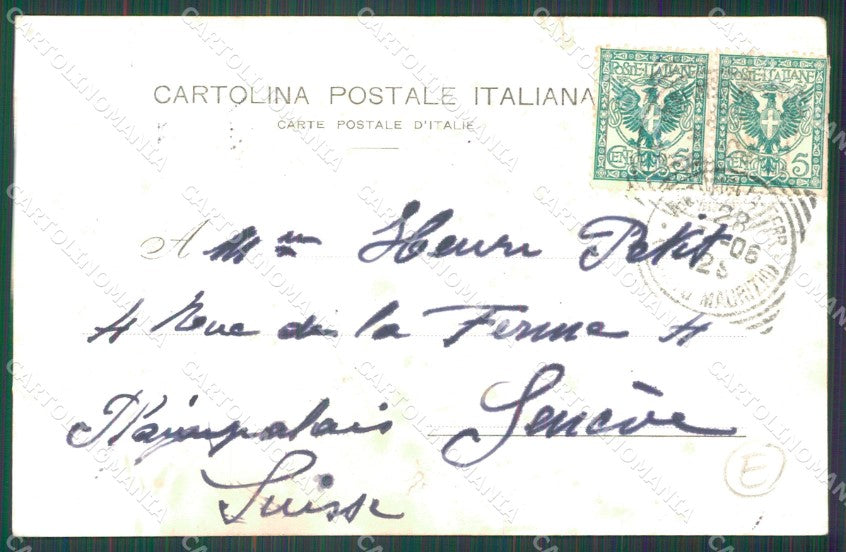 CARTOLINA POSTALE ITALIANA
CARTE POSTALE D'ITALIE
POSTE ITALIANE POSTE ITALIANE
CENT 5 CENT 5
28
06
MAURIZIO
A Mme Henri Petit
4 Rue de la Ferme 4
Plainpalais Genève
Suisse
E
CARTOLINOMANIA